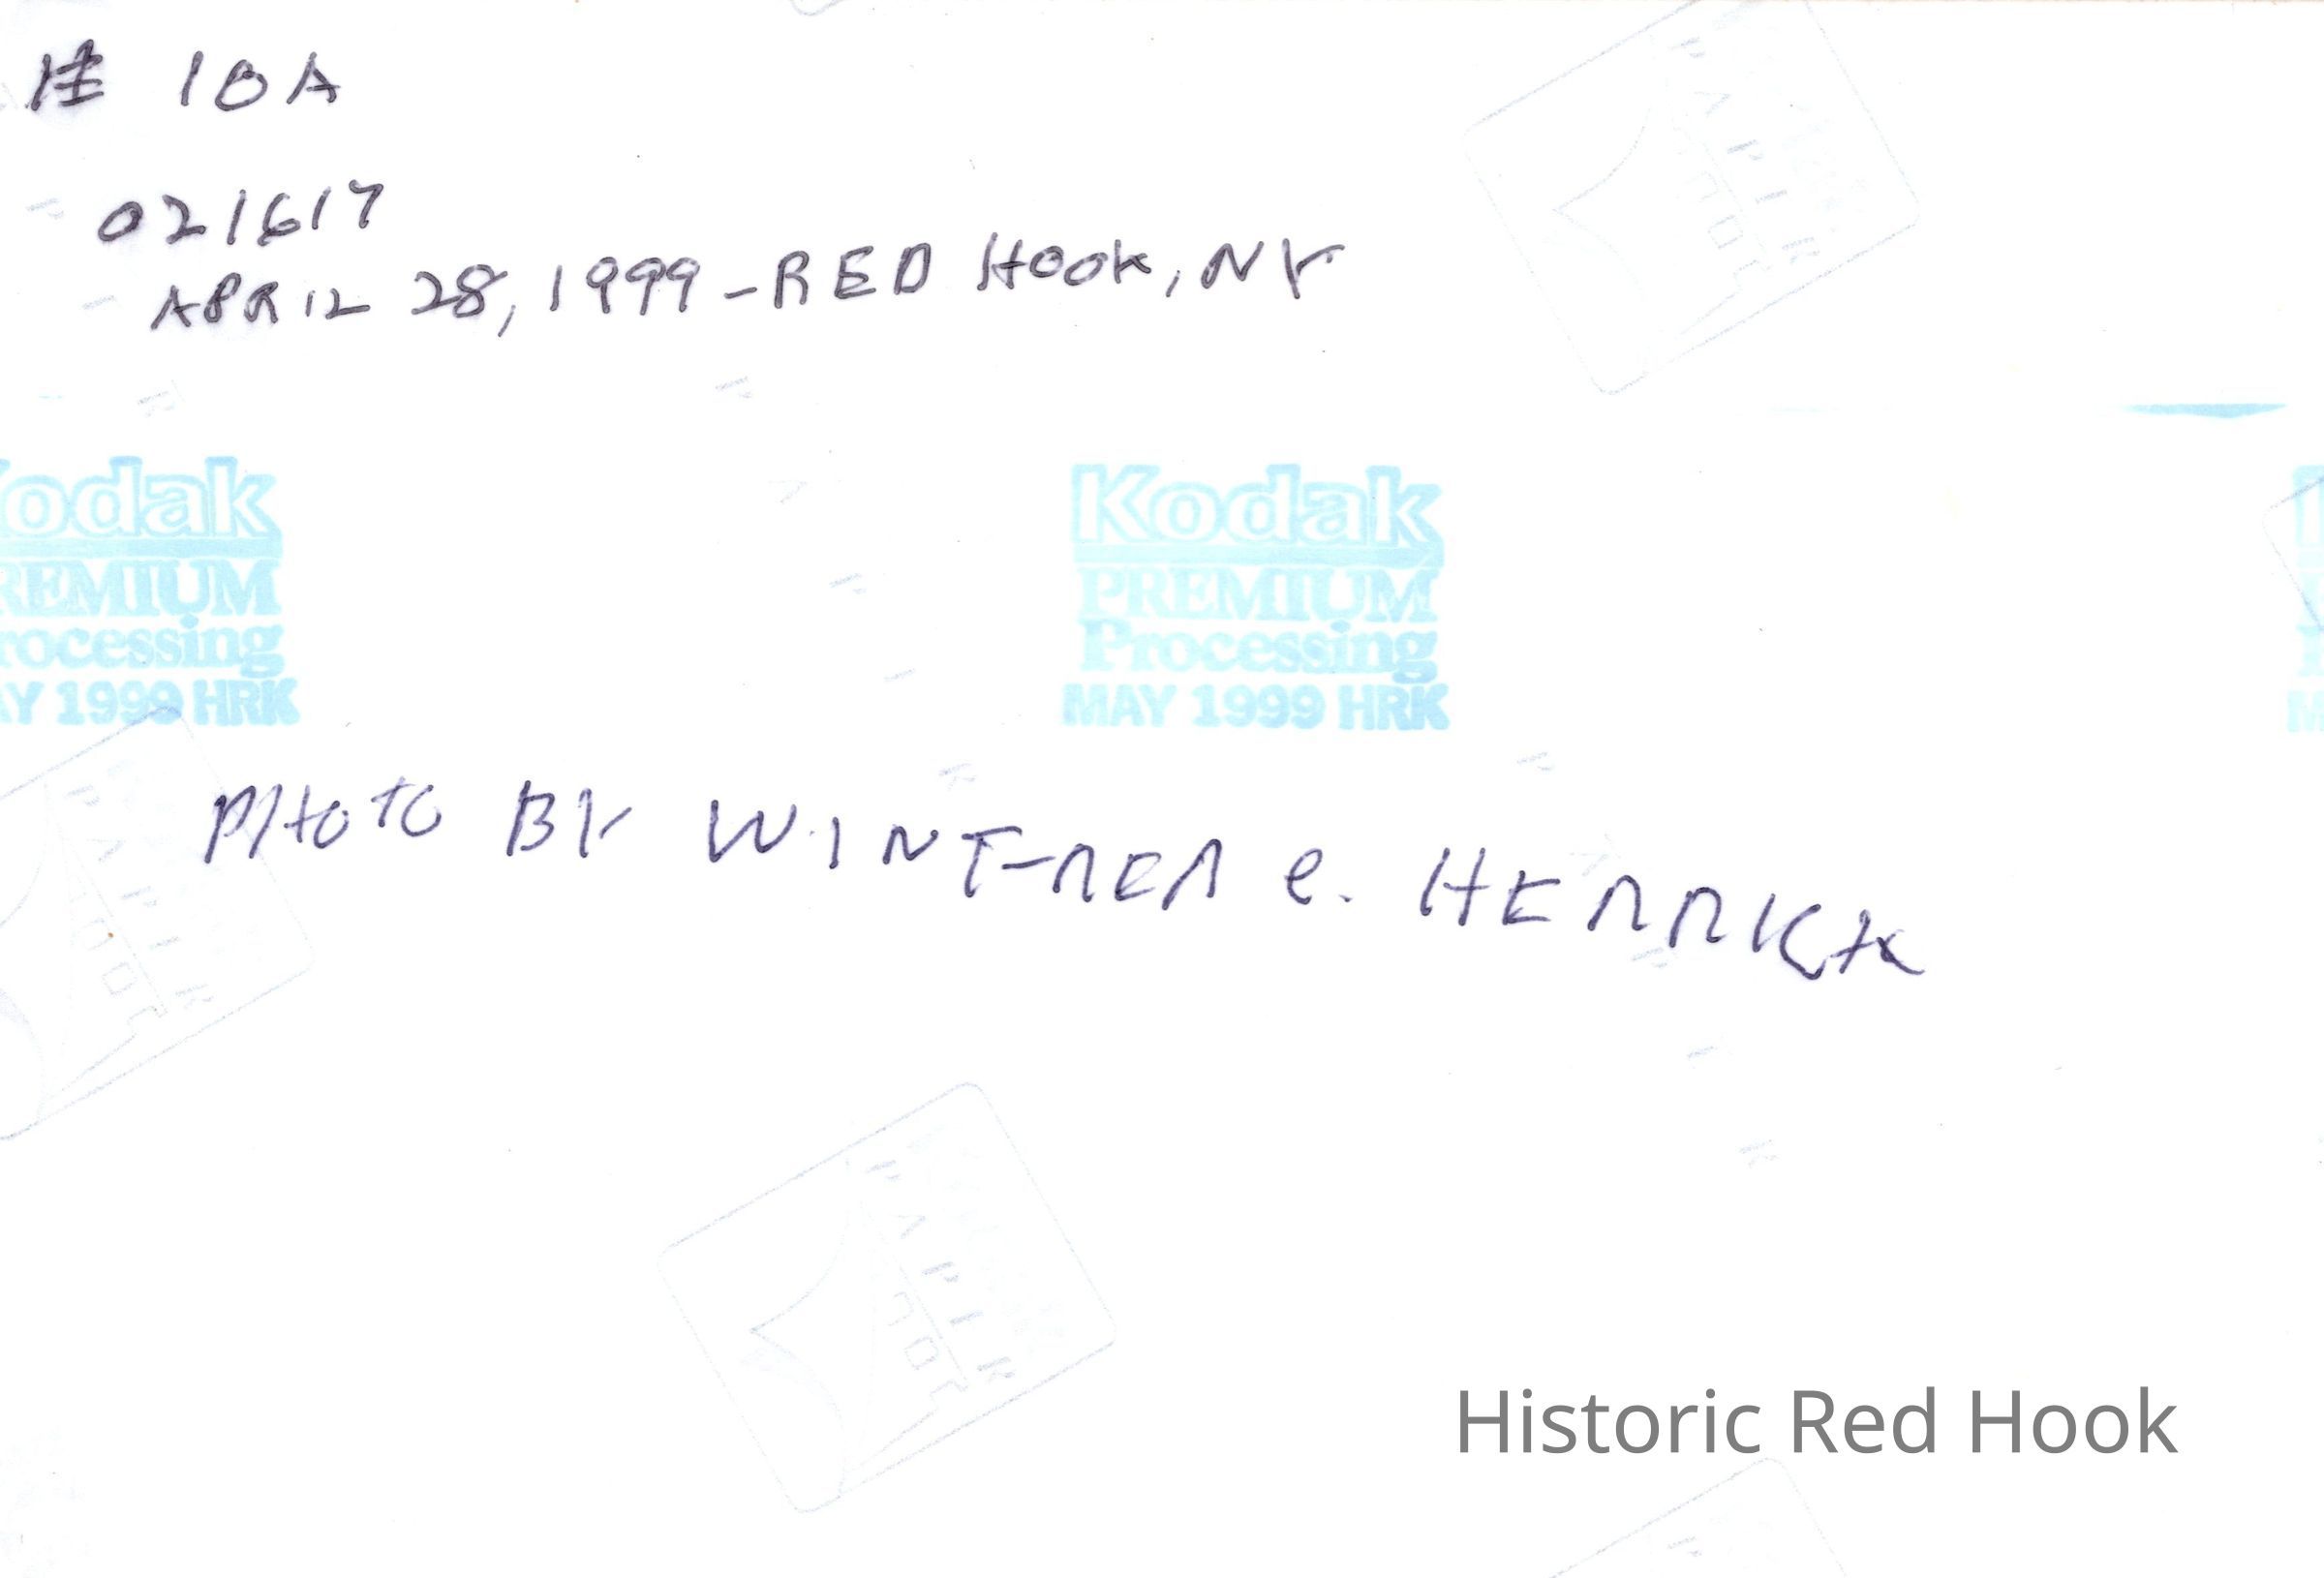 # 10A
021617
APRIL 28, 1999 - RED HOOK, NY
Kodak
PREMIUM
Processing
MAY 1999 HRK
odak
REMIUM
rocessing
AY 1999 HRK
PHOTO BY WINT-RER C. HERRICK
Historic Red Hook